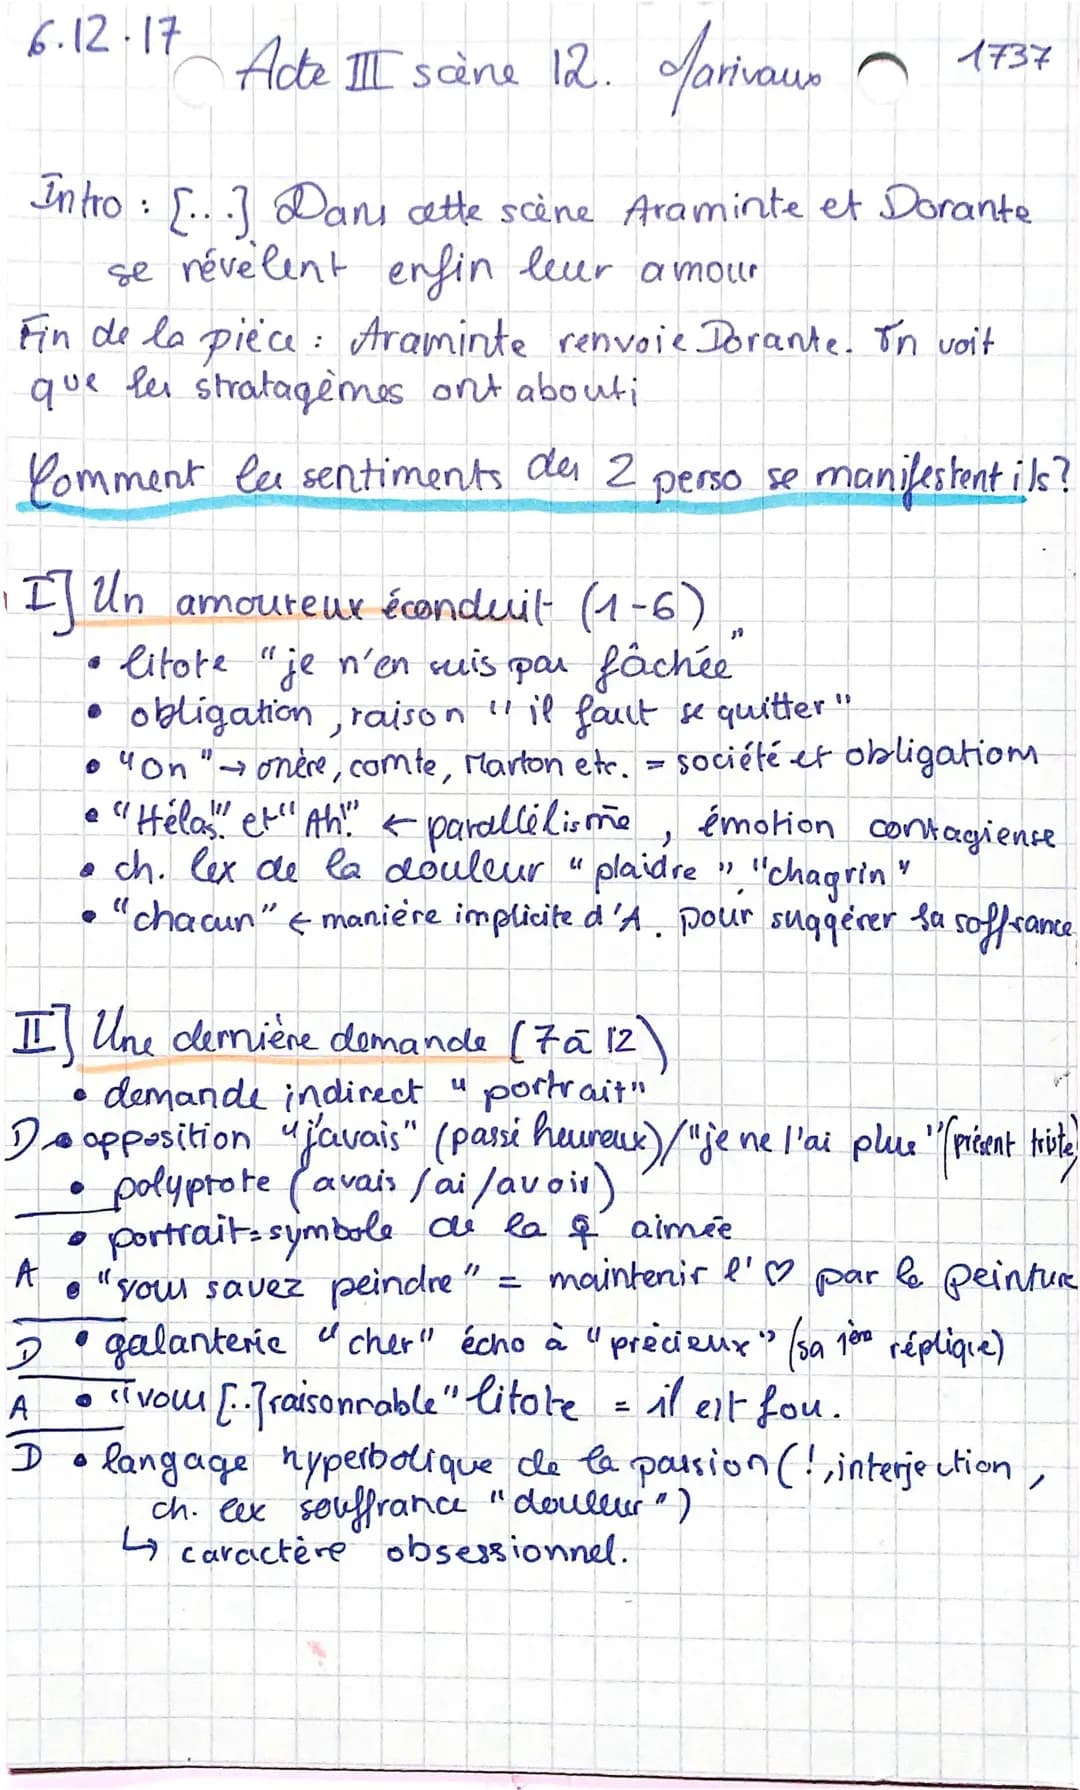 6.12.17
Acte III scène 12. Marivaux
1737
Intro : [...] Dans cette scène Araminte et Dorante
se révèlent enfin leur amour
Fin de la pièce : Araminte renvoie Dorante. On voit
que les stratagèmes ont abouti
Comment les sentiments des 2 perso se manifestent ils?
I] Un amoureux éconduit (1-6)
• litote "je n'en suis pas fâchée"
• obligation, raison "il faut se quitter"
• "On" → mère, comte, Marton etc. = société et obligations
• "Hélas!" et "Ah!" ← parallélisme, émotion contagieuse
• ch. lex de la douleur "plaidre", "chagrin"
• "chacun" ← manière implicite d'A. pour suggérer sa soffrance
II] Une dernière demande (7 à 12)
• demande indirect "portrait"
D • opposition "j'avais" (passé heureux)/"je ne l'ai plus" (présent triste)
• polyptote (avais /ai /avoir)
• portrait = symbole de la ♀ aimée
A • "vous savez peindre" = maintenir l'♡ par la peinture
D • galanterie "cher" écho à "précieux" (sa 1ère réplique)
A • "vous [..] raisonnable" litote = il est fou.
D • langage hyperbolique de la passion (!, interjection,
ch. lex souffrance "douleur")
↳ caractère obsessionnel.